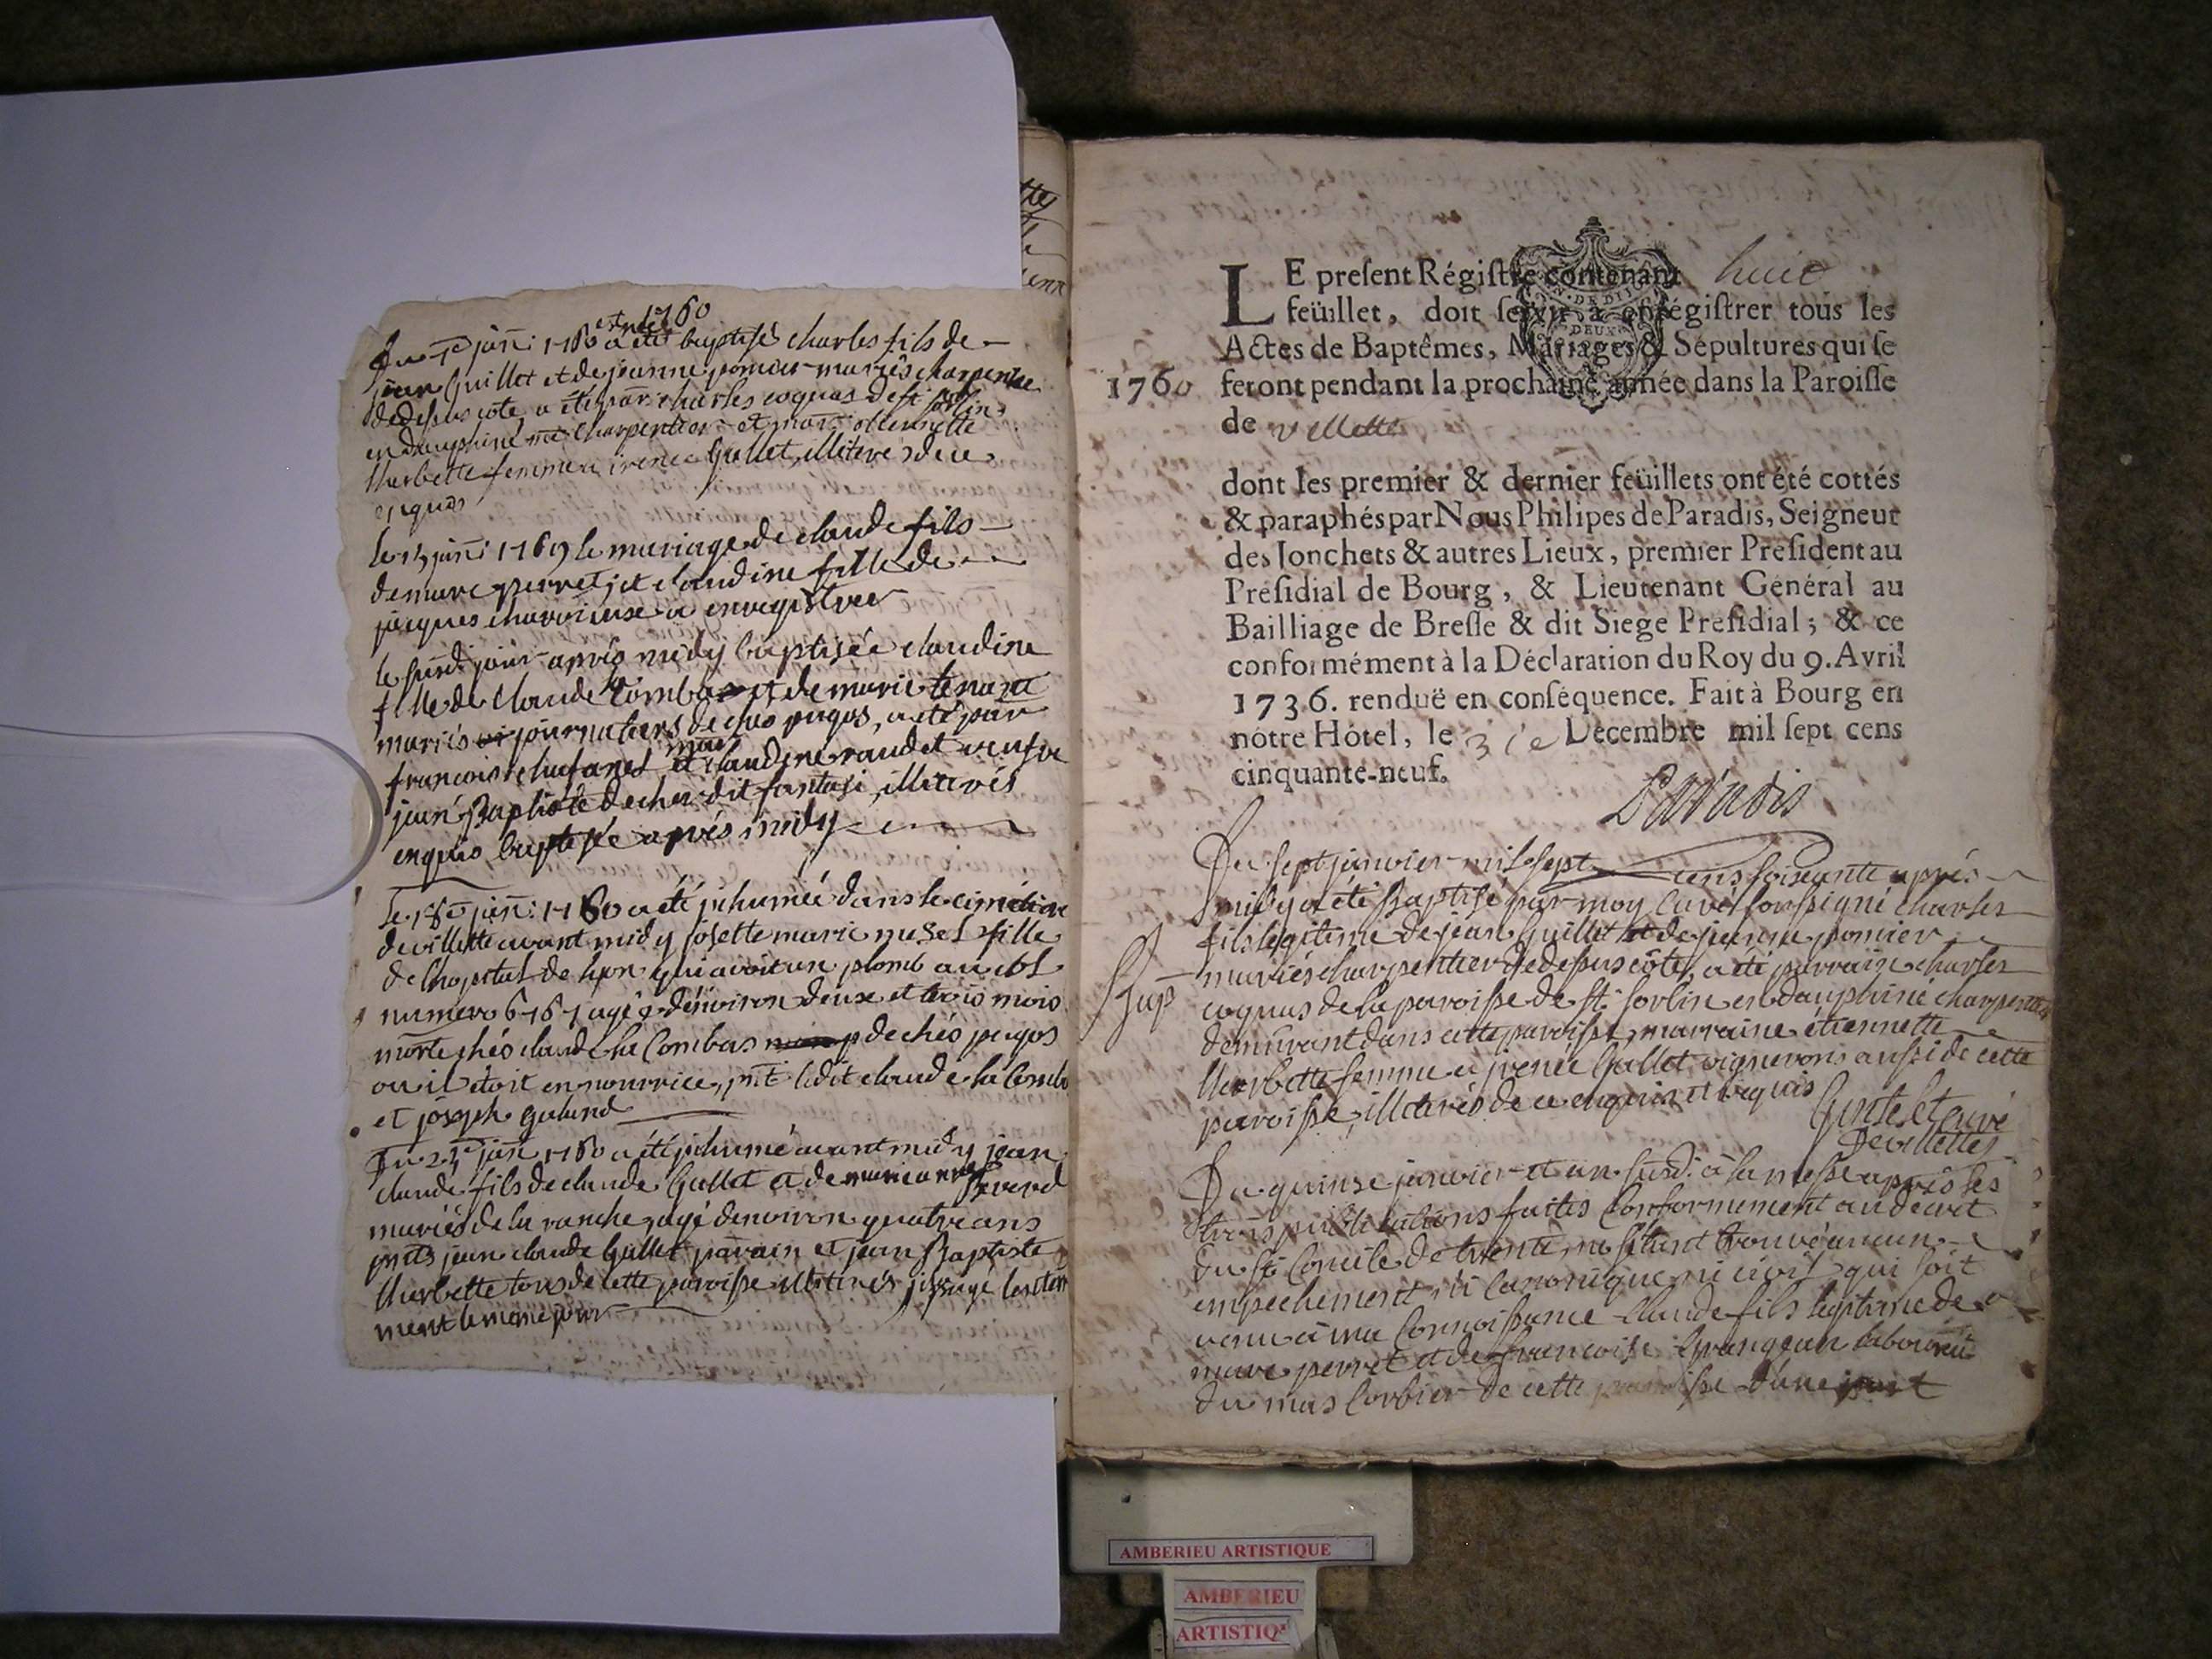 1760
Du 7e janr: 1760 a été baptisé charles fils de
jean Guillet et de jeanne pomier mariés charpentier
de dessus côte, a été par. charles coquas de st sorlin
en dauphiné charpentier et mar. etiennette
Murbette femme a irenée Gallet, illiterés de ce
enquis
le 15 janr: 1760 le mariage de claude fils
de marc perret et claudine fille de
jacques charvieux a enregistrer
le susdi jour après midy baptisée claudine
fille de claude Combas et de marie tenant
mariés journaliers de chés pugos, a été par
francois chufanel et mar claudine raudet veufve
jean Baptiste decher dit fantasi, illiterés
enquis baptisée après midy
Le 18e janr: 1760 a été inhumée dans le cimetière
de villette avant midy josette marie musel fille
de l'hopital de lyon qui avoit un plomb au col
numero 6161 agée d'environ deux et trois mois
morte chés claude la Combas de chés pugos
ou il étoit en nourrice, pnt ledit claude la Comba
et joseph galand
Du 21e janr 1760 a été inhumé avant midy jean
claude fils de claude Gallet et de marianne
mariés de la ranche, agé denviron quatre ans
pnts jean claude Gallet parain et jean Baptiste
Murbette tous de cette paroisse illiterés
ment le meme jour
LE present Régistre contenant huit
feüillet, doit servir à enrégistrer tous les
Actes de Baptêmes, Mariages & Sépultures qui se
1760 feront pendant la prochaine année dans la Paroisse
de vellette
dont les premier & dernier feüillets ont été cottés
& paraphés par Nous Philipes de Paradis, Seigneur
des Jonchets & autres Lieux, premier President au
Presidial de Bourg, & Lieutenant Géneral au
Bailliage de Bresse & dit Siege Presidial; & ce
conformément à la Déclaration du Roy du 9. Avril
1736. renduë en conséquence. Fait à Bourg en
nôtre Hôtel, le 31e Decembre mil sept cens
cinquante-neuf.
Paradis
Du sept janvier mil sept cens soixante après
midy a été Baptisé par moy curé soussigné charles
fils legitime de jean Guillet et de jeanne pomier
mariés charpentier de dessus côte, a été parrain charles
Bap coquas de la paroisse de St. sorlin en dauphiné charpentier
demeurant dans cette paroisse, marraine étiennette
Murbette femme a irenée Gallet vigneron aussi de cette
paroisse, illiterés de ce enquis et requis
curé
De villettes
Du quinze janvier et an susd. à la messe après les
trois publications faites Conformement au decret
du St. Concile de trente ne s'étant trouvé aucun
empechement ni Canonique ni civil qui soit
venu à ma Connoissance claude fils legitime de
marc perret et de francoise Grangean laboureur
du mas Corbier de cette paroisse d'une part
AMBERIEU ARTISTIQUE
AMBERIEU
ARTISTIQ